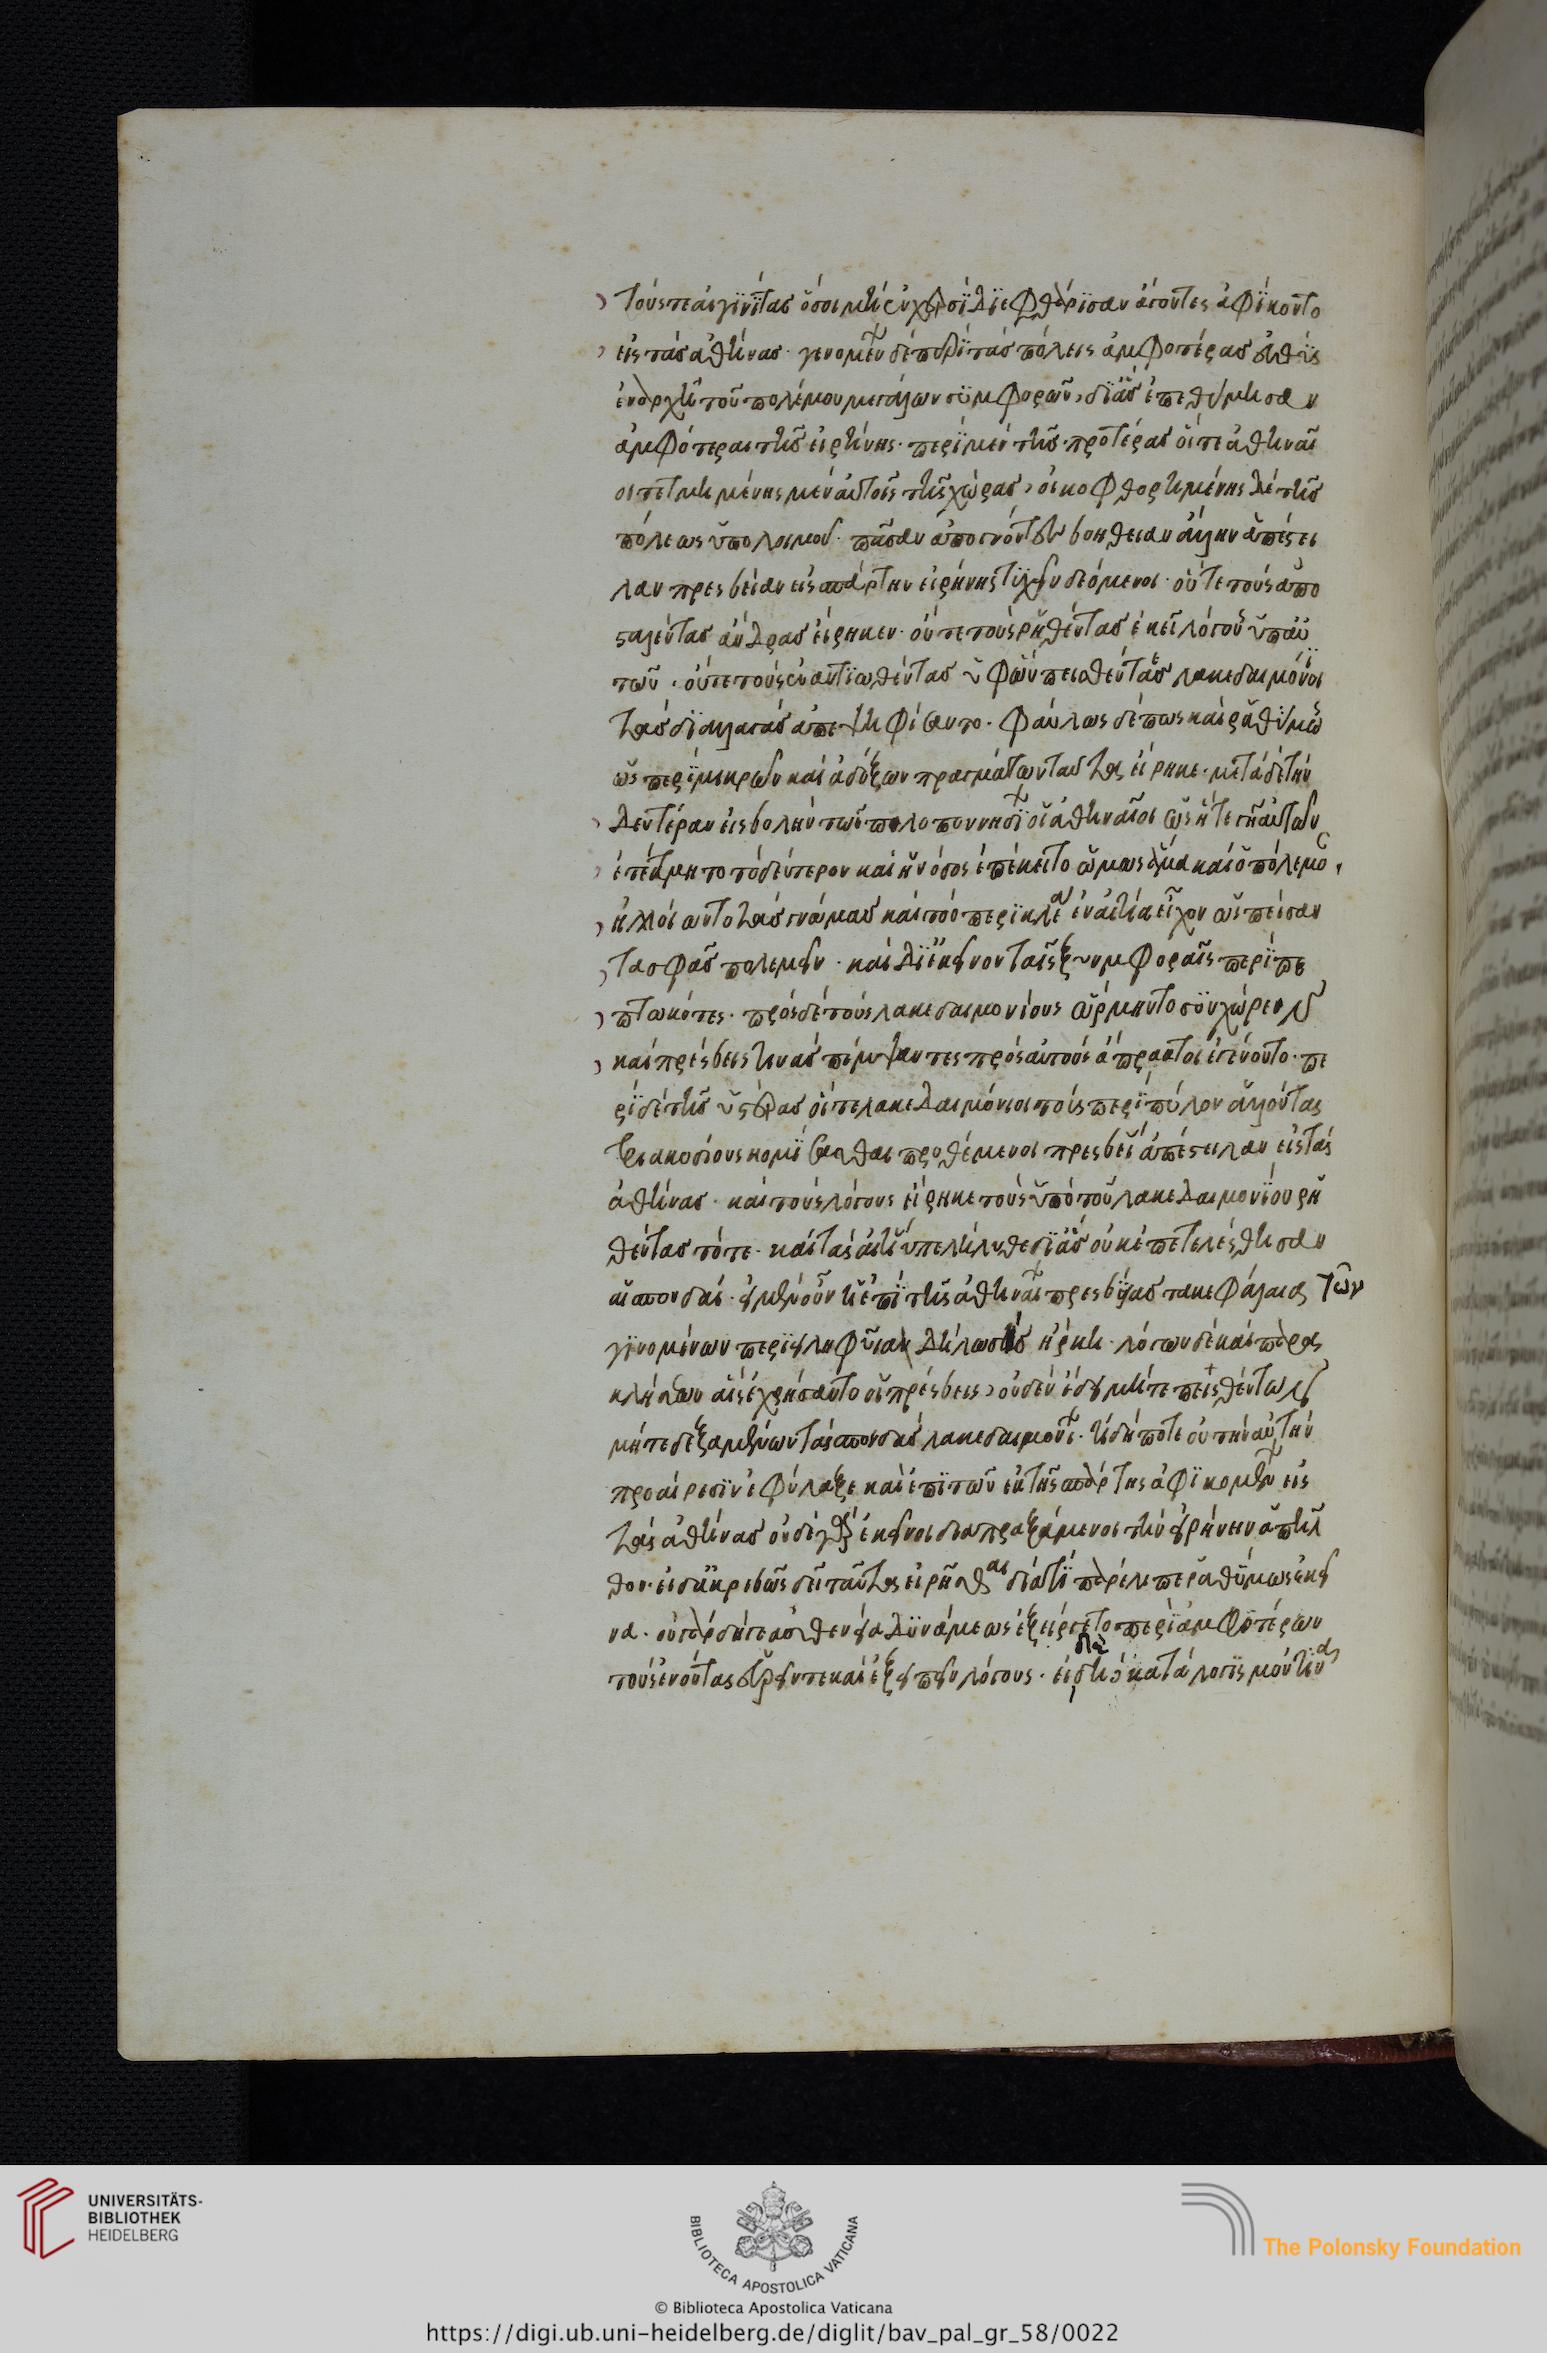 τούς τε αἰγινίτας ὅσοι μὴ ἐν χερσὶ διεφθάρισαν ἄγοντες ἀφίκοντο
εἰς τὰς ἀθήνας· γενομένων δὲ περὶ τὰς πόλεις ἀμφοτέρας εὐθὺς
ἐν ἀρχῇ τοῦ πολέμου μεγάλων συμφορῶν, δι' ἃς ἐπεθύμησαν
ἀμφότεραι τῆς εἰρήνης· περὶ μὲν τῆς προτέρας ὅτε ἀθηναῖ
οι τετμημένης μὲν αὐτοῖς τῆς χώρας, οἰκοφθορημένης δὲ τῆς
πόλεως ὑπὸ λοιμοῦ· πᾶσαν ἀπογνόντων βοήθειαν ἄλλην ἀπέστει
λαν πρεσβείαν εἰς σπάρτην εἰρήνης τυχεῖν δεόμενοι· οὔτε τοὺς ἀπο
σταλέντας ἄνδρας εἴρηκεν· οὔτε τοὺς ῥηθέντας ἐκεῖ λόγους ὑπ' αὐ
τῶν· οὔτε τοὺς ἐναντιωθέντας ὑφ' ὧν πεισθέντας λακεδαιμόνιοι
τὰς διαλλαγὰς ἀπεψηφίσαντο· φαύλως δέ πως καὶ ῥαθύμως
ὡς περὶ μικρῶν καὶ ἀδόξων πραγμάτων ταῦτα εἴρηκε· μετὰ δὲ τὴν
δευτέραν εἰσβολὴν τῶν πελοποννησίων οἱ ἀθηναῖοι ὡς ἥ τε γῆ αὐτῶν
ἐτέτμητο τὸ δεύτερον καὶ ἡ νόσος ἐπέκειτο ὅμως ἅμα καὶ ὁ πόλεμος,
ἠλλοίωντο τὰς γνώμας καὶ τὸν περικλέα ἐν αἰτίᾳ εἶχον ὡς πείσαν
τα σφᾶς πολεμεῖν· καὶ δι' ἐκεῖνον ταῖς ξυμφοραῖς περιπε
πτωκότες· πρὸς δὲ τοὺς λακεδαιμονίους ὥρμηντο συγχωρεῖν
καὶ πρέσβεις τινὰς πέμψαντες πρὸς αὐτοὺς ἄπρακτοι ἐγένοντο· πε
ρὶ δὲ τῆς ὑστέρας οἵ τε λακεδαιμόνιοι τοὺς περὶ πύλον ἁλόντας
τριακοσίους κομίσασθαι προθέμενοι πρεσβεῖ ἀπέστειλαν εἰς τὰς
ἀθήνας· καὶ τοὺς λόγους εἴρηκε τοὺς ὑπὸ τοῦ λακεδαιμονίου ῥη
θέντας τότε· καὶ τὰς αἰτίας διεπελήλυθε δι' ἃς οὐκ ἐπετελέσθησαν
αἱ σπονδαί· εἰ μὲν οὖν ἡ ἐπὶ τῆς ἀθηναί πρεσβείας τὰ κεφάλαια τῶν
γινομένων περιειληφυῖα δήλωσις ἤρκει· λόγων δὲ καὶ παρα
κλήσεων αἷς ἐχρήσαντο οἱ πρέσβεις, οὐδὲν ἔδει μήτε πεισθέντων
μήτε δεξαμένων τὰς σπονδὰς λακεδαιμονί· τί δήποτε οὐ τὴν αὐτὴν
προαίρεσιν ἐφύλαξε καὶ ἐπὶ τῶν ἐκ τῆς σπάρτης ἀφικομένων εἰς
τὰς ἀθήνας οὐδὲ γὰρ ἐκεῖνοι διαπραξάμενοι τὴν εἰρήνην ἀπῆλ
θον· εἰ δ' ἀκριβῶς δεῖ ταῦτα εἰρῆσθαι διὰ τί παρέλιπε ῥαθύμως ἐκεῖ
να· οὐ γὰρ δή γε ἀσθενείᾳ δυνάμεως ἐξείργετο περὶ ἀμφοτέρων
τοὺς ἐνόντας εὑρεῖν τε καὶ ἐξειπεῖν λόγους· εἰ δὲ δὴ κατὰ λογισμόν τινα